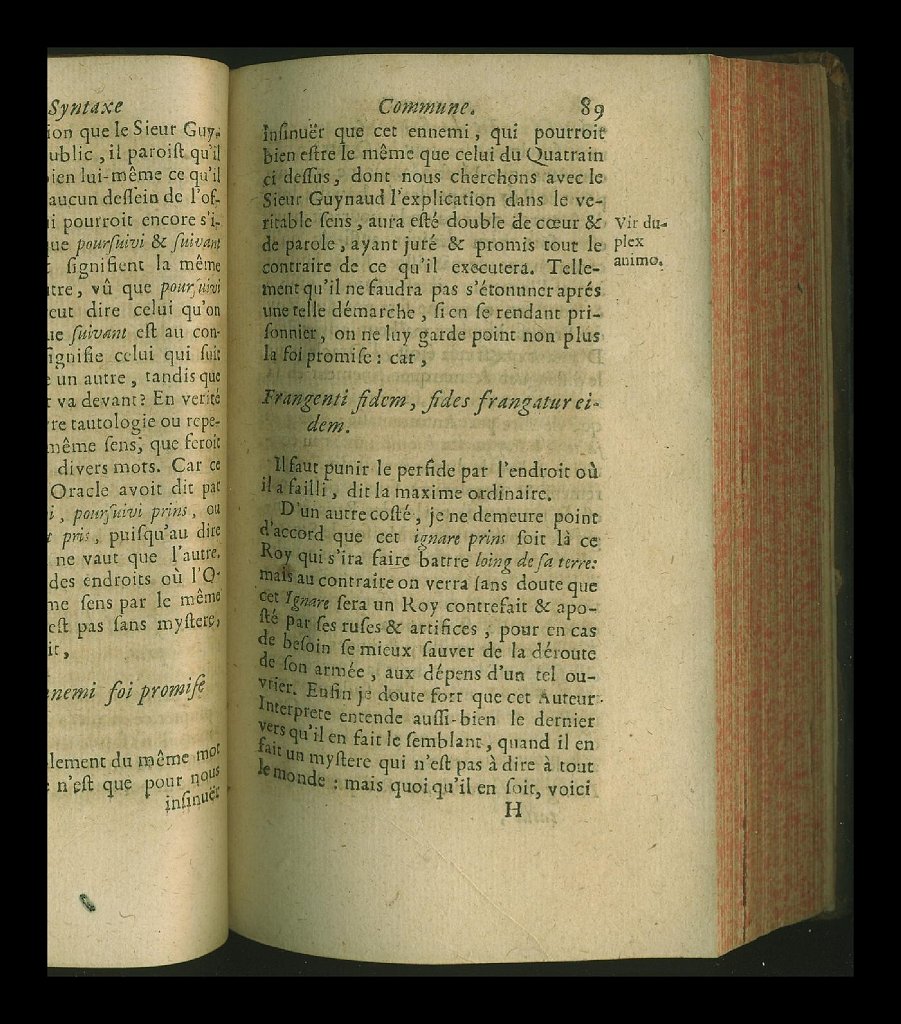 Syntaxe
ion que le Sieur Guy-
ublic, il paroiſt qu'il
ien lui-même ce qu'il
aucun deſſein de l'of-
i pourroit encore s'i-
ue pourſuivi & ſuivant
ſignifient la même
tre, vû que pourſuivi
eut dire celui qu'on
ue ſuivant eſt au con-
ſignifie celui qui ſuit
e un autre, tandis que
t va devant? En verité
re tautologie ou repe-
nême ſens, que feroit
divers mots. Car ce
Oracle avoit dit par
i, pourſuivi prins, ou
t pris, puiſqu'au dire
ne vaut que l'autre.
des endroits où l'O-
ne ſens par le même
eſt pas ſans myſtere,
it,
nnemi foi promiſe
lement du même mot
n'eſt que pour nous
inſinuër
Commune. 89
inſinuër que cet ennemi, qui pourroit
bien eſtre le même que celui du Quatrain
ci deſſus, dont nous cherchons avec le
Sieur Guynaud l'explication dans le ve-
ritable ſens, aura eſté double de cœur &
de parole, ayant juré & promis tout le
contraire de ce qu'il executera. Telle-
ment qu'il ne faudra pas s'étonnner aprés
une telle démarche, ſi en ſe rendant pri-
ſonnier, on ne luy garde point non plus
la foi promiſe: car,
Frangenti fidem, fides frangatur ei-
dem.
Il faut punir le perfide par l'endroit où
il a failli, dit la maxime ordinaire.
D'un autre coſté, je ne demeure point
d'accord que cet ignare prins ſoit là ce
Roy qui s'ira faire battre loing de ſa terre:
mais au contraire on verra ſans doute que
cet Ignare ſera un Roy contrefait & apo-
ſté par ſes ruſes & artifices, pour en cas
de beſoin ſe mieux ſauver de la déroute
de ſon armée, aux dépens d'un tel ou-
vrier. Enfin je doute fort que cet Auteur
Interprete entende auſſi-bien le dernier
vers qu'il en fait le ſemblant, quand il en
fait un myſtere qui n'eſt pas à dire à tout
le monde: mais quoi qu'il en ſoit, voici
H
Vir du-
plex
animo.